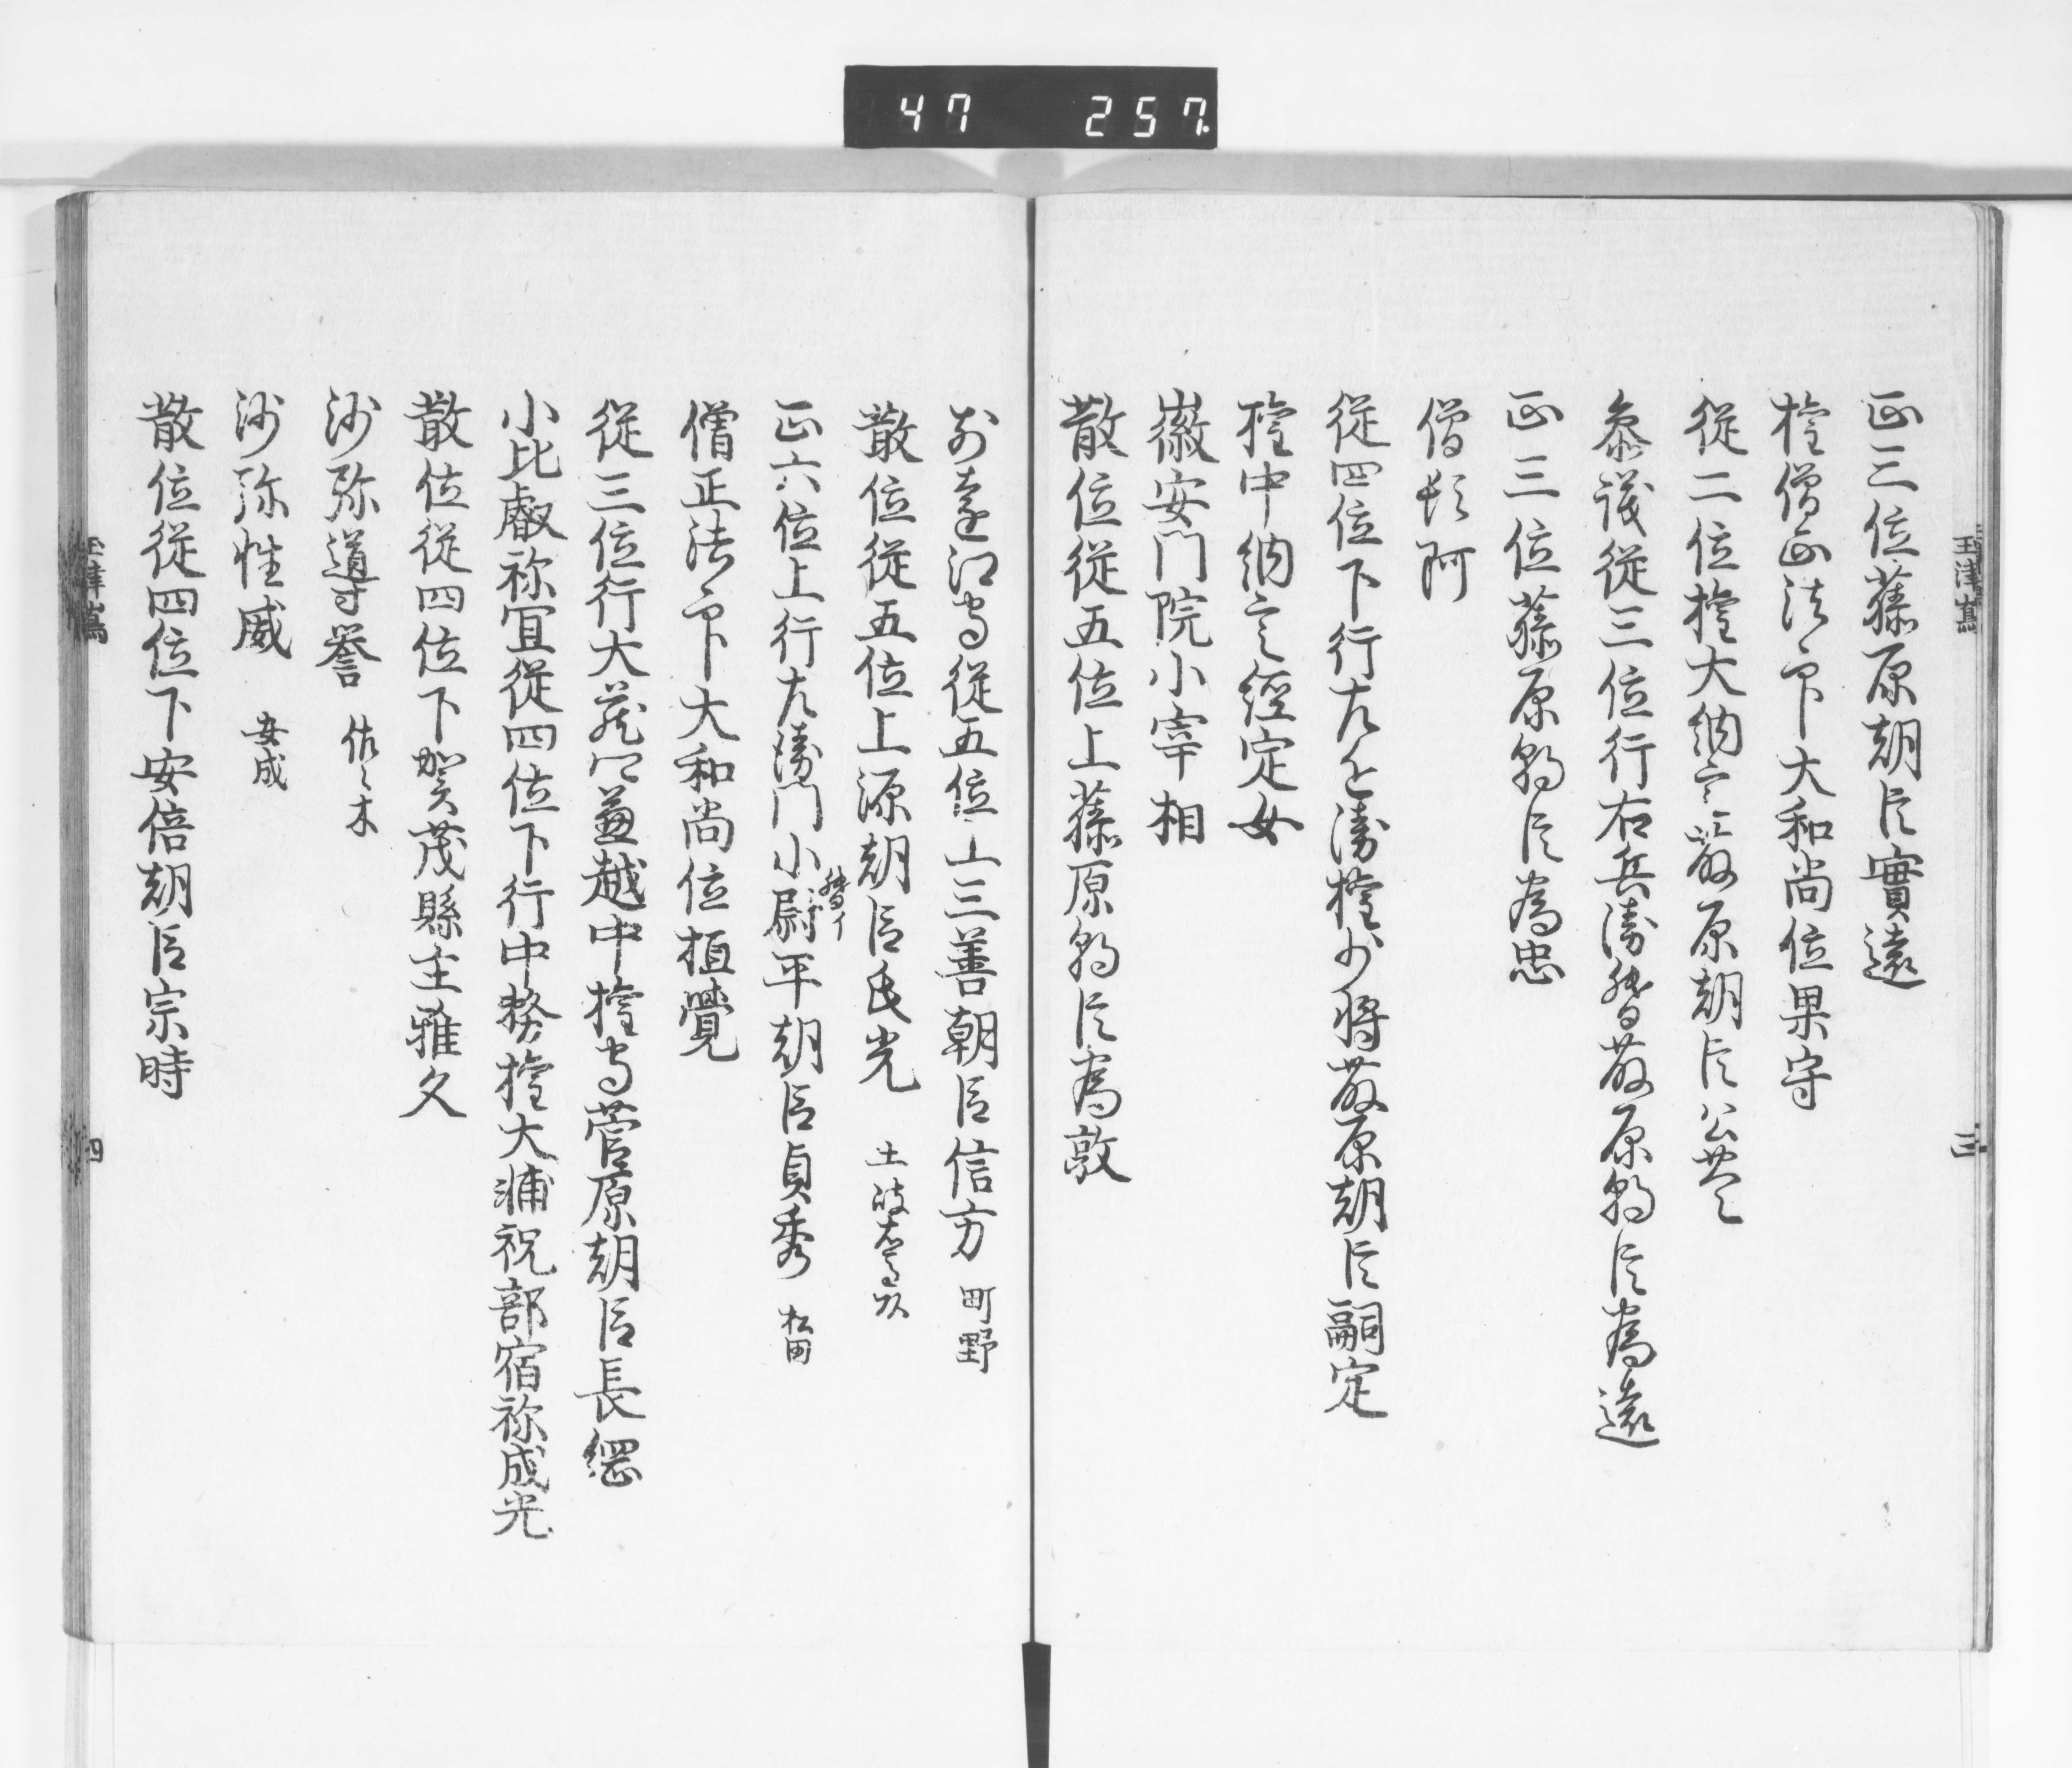 47 257
玉津嶌
三
正三位藤原朝臣實遠
權僧正法印大和尚位果守
從二位權大納言藤原朝臣公豊
參議從三位行右兵衛督藤原朝臣為遠
正三位藤原朝臣為忠
僧頓阿
從四位下行左近衛權少將藤原朝臣嗣定
權中納言經定女
徽安門院小宰相
散位從五位上藤原朝臣為敦
前遠江守從五位上三善朝臣信方 町野
散位從五位上源朝臣氏光 土岐
正六位上行左衛門小尉平朝臣貞秀 松田
僧正法印大和尚位桓覺
從三位行大蔵卿兼越中權守菅原朝臣長綱
小比叡祢宜從四位下行中務權大輔祝部宿祢成光
散位從四位下賀茂縣主雅久
沙弥道誉 佐々木
沙弥性威 安威
散位從四位下安倍朝臣宗時
玉津嶌
四